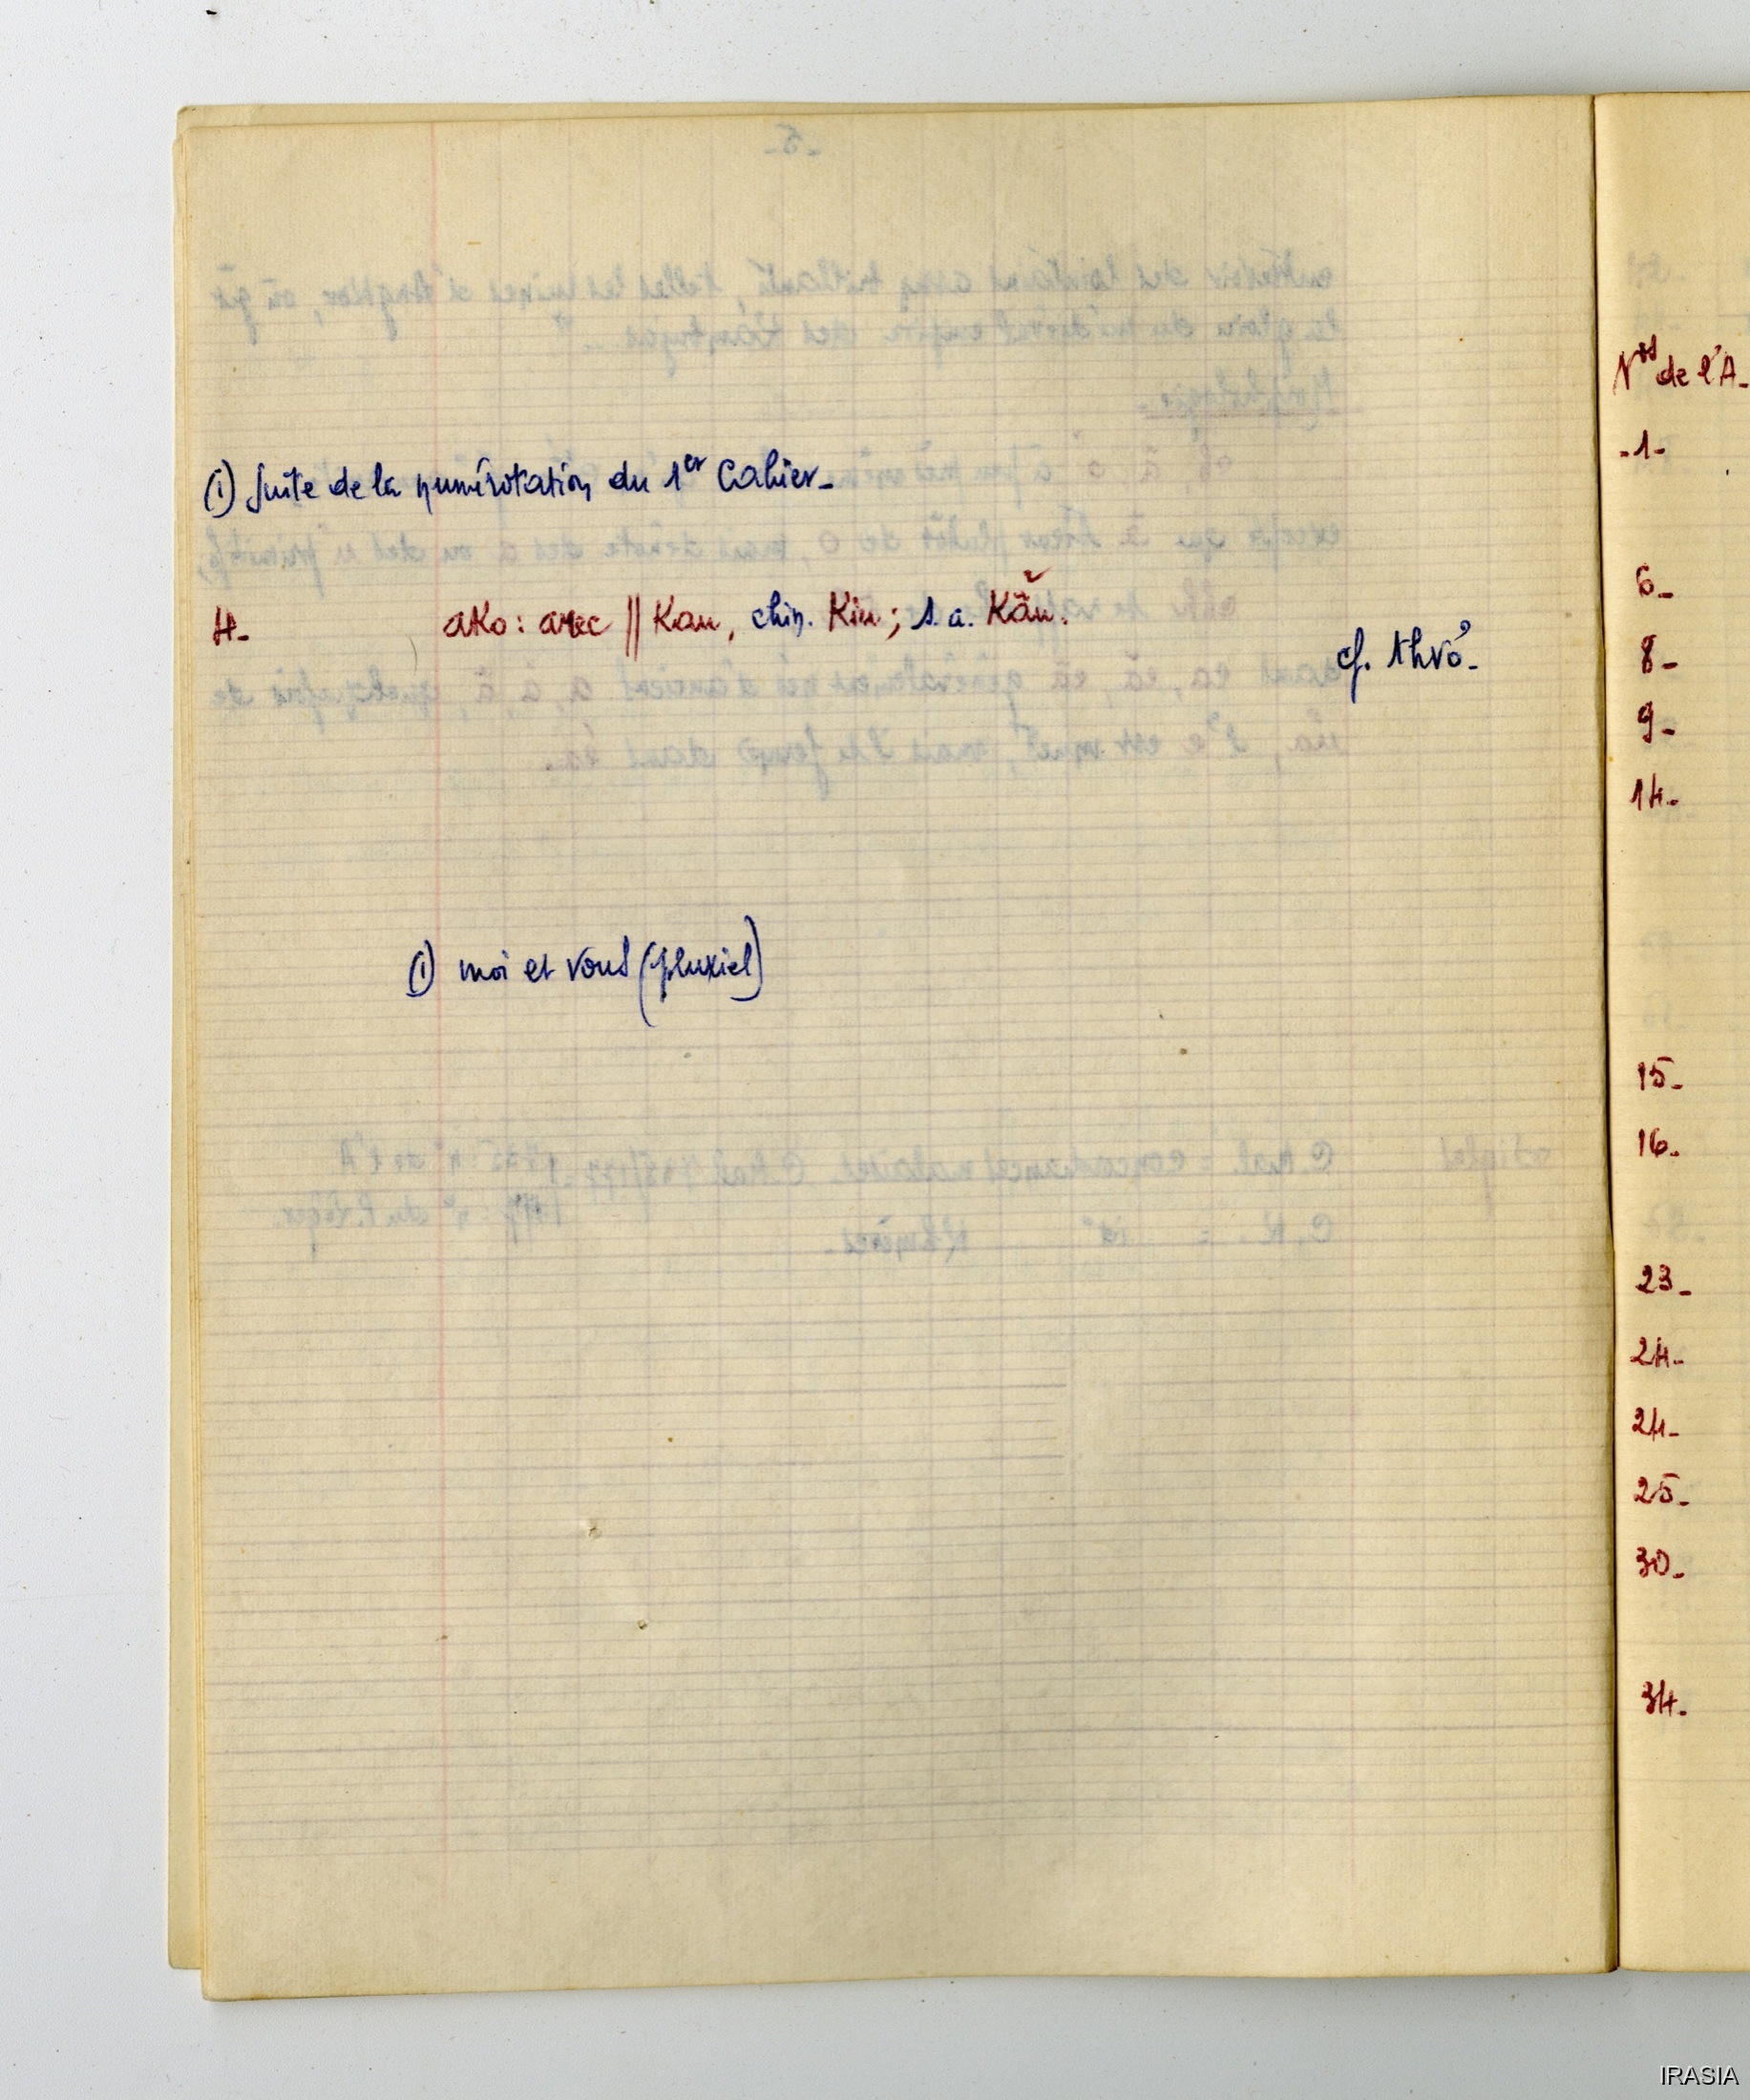 (1) Suite de la numérotation du 1er Cahier_
4_ aKo: avec || Kau, chin. Kiu; s.a. Kâ̆u.
cf. thvo̓_
(1) moi et vous (pluriel)
Nos de l'A_
_1_
6_
8_
9_
14_
15_
16_
23_
24_
24_
25_
30_
34_
IRASIA